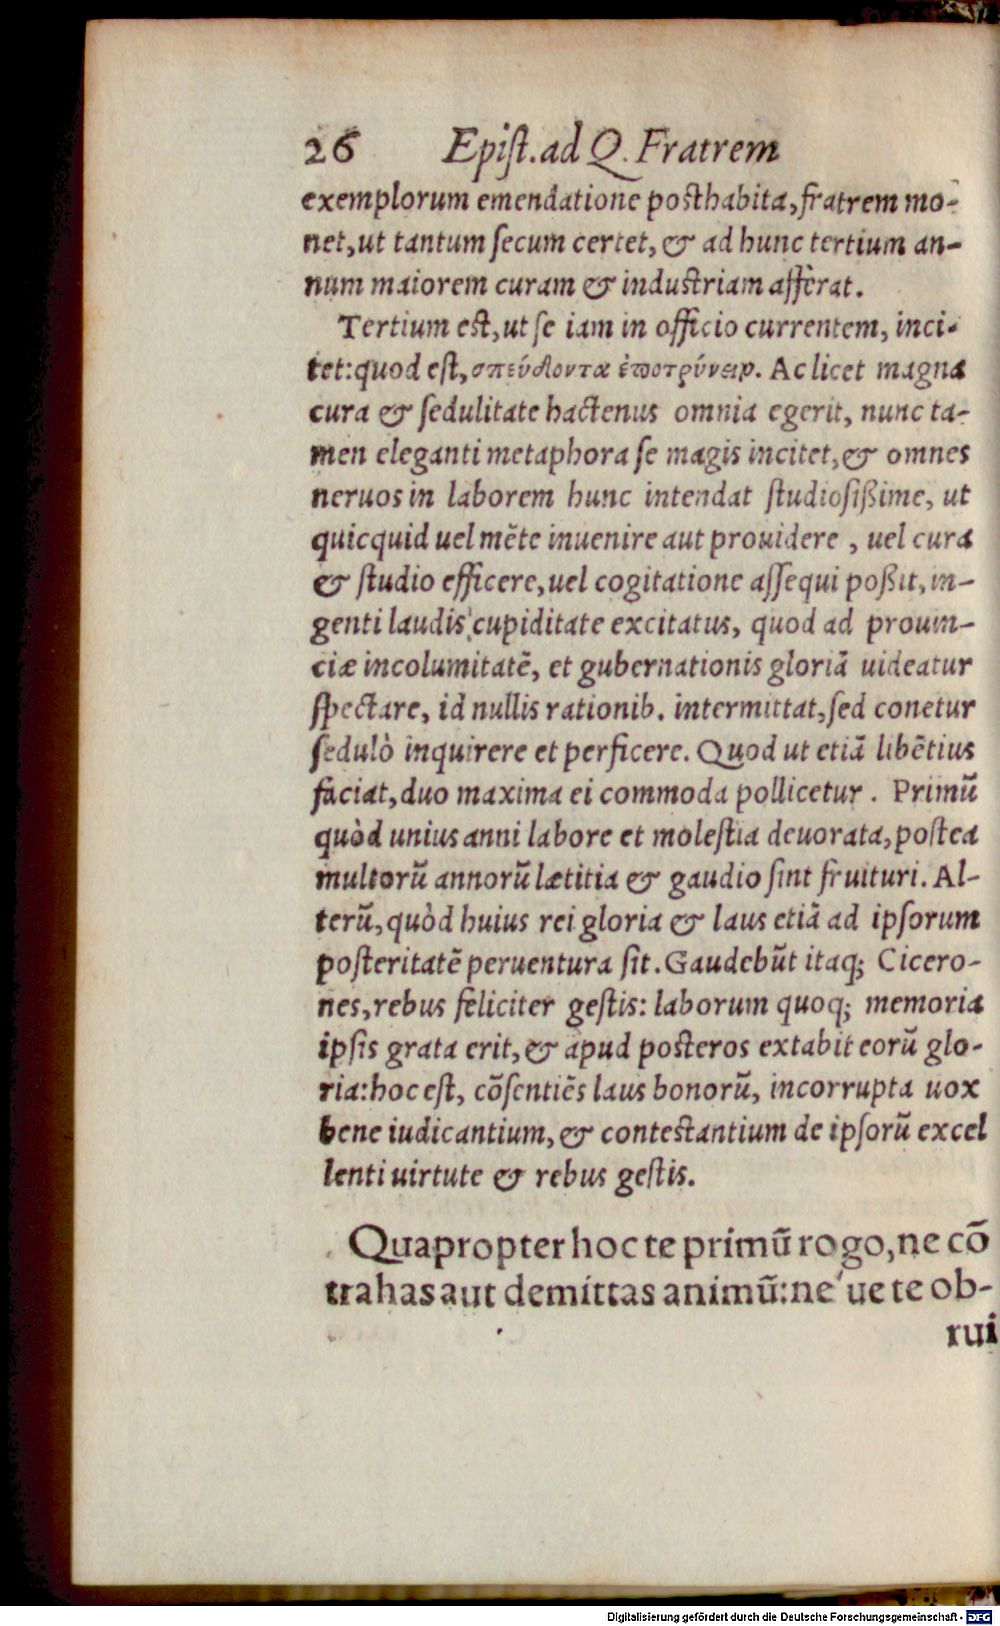 26 Epiſt. ad Q. Fratrem
exemplorum emendatione posthabita, fratrem mo-
net, ut tantum ſecum certet, & ad hunc tertium an-
num maiorem curam & industriam affèrat.
Tertium est, ut ſe iam in officio currentem, inci-
tet: quod eſt, σπεύδοντα ἐποτρύνειν. Ac licet magna
cura & ſedulitate hactenus omnia egerit, nunc ta-
men eleganti metaphora ſe magis incitet, & omnes
neruos in laborem hunc intendat ſtudioſißime, ut
quicquid uel mẽte inuenire aut prouidere , uel cura
& ſtudio efficere, uel cogitatione aſſequi poßit, in-
genti laudis cupiditate excitatus, quod ad prouin-
ciæ incolumitatẽ, et gubernationis gloriã uideatur
ſpectare, id nullis rationib. intermittat, ſed conetur
ſedulò inquirere et perficere. Quod ut etiã libẽtius
faciat, duo maxima ei commoda pollicetur . Primũ
quòd unius anni labore et moleſtia deuorata, poſtea
multorũ annorũ lætitia & gaudio ſint fruituri. Al-
terũ, quòd huius rei gloria & laus etiã ad ipſorum
poſteritatẽ peruentura ſit. Gaudebũt itaq; Cicero-
nes, rebus feliciter geſtis: laborum quoq; memoria
ipſis grata erit, & apud posteros extabit eorũ glo-
ria: hoc eſt, cõſentiẽs laus bonorũ, incorrupta uox
bene iudicantium, & contestantium de ipſorũ excel
lenti uirtute & rebus geſtis.
Quapropter hoc te primũ rogo, ne cõ
trahas aut demittas animũ: ne´ue te ob-
rui
Digitalisierung gefördert durch die Deutsche Forschungsgemeinschaft - DFG